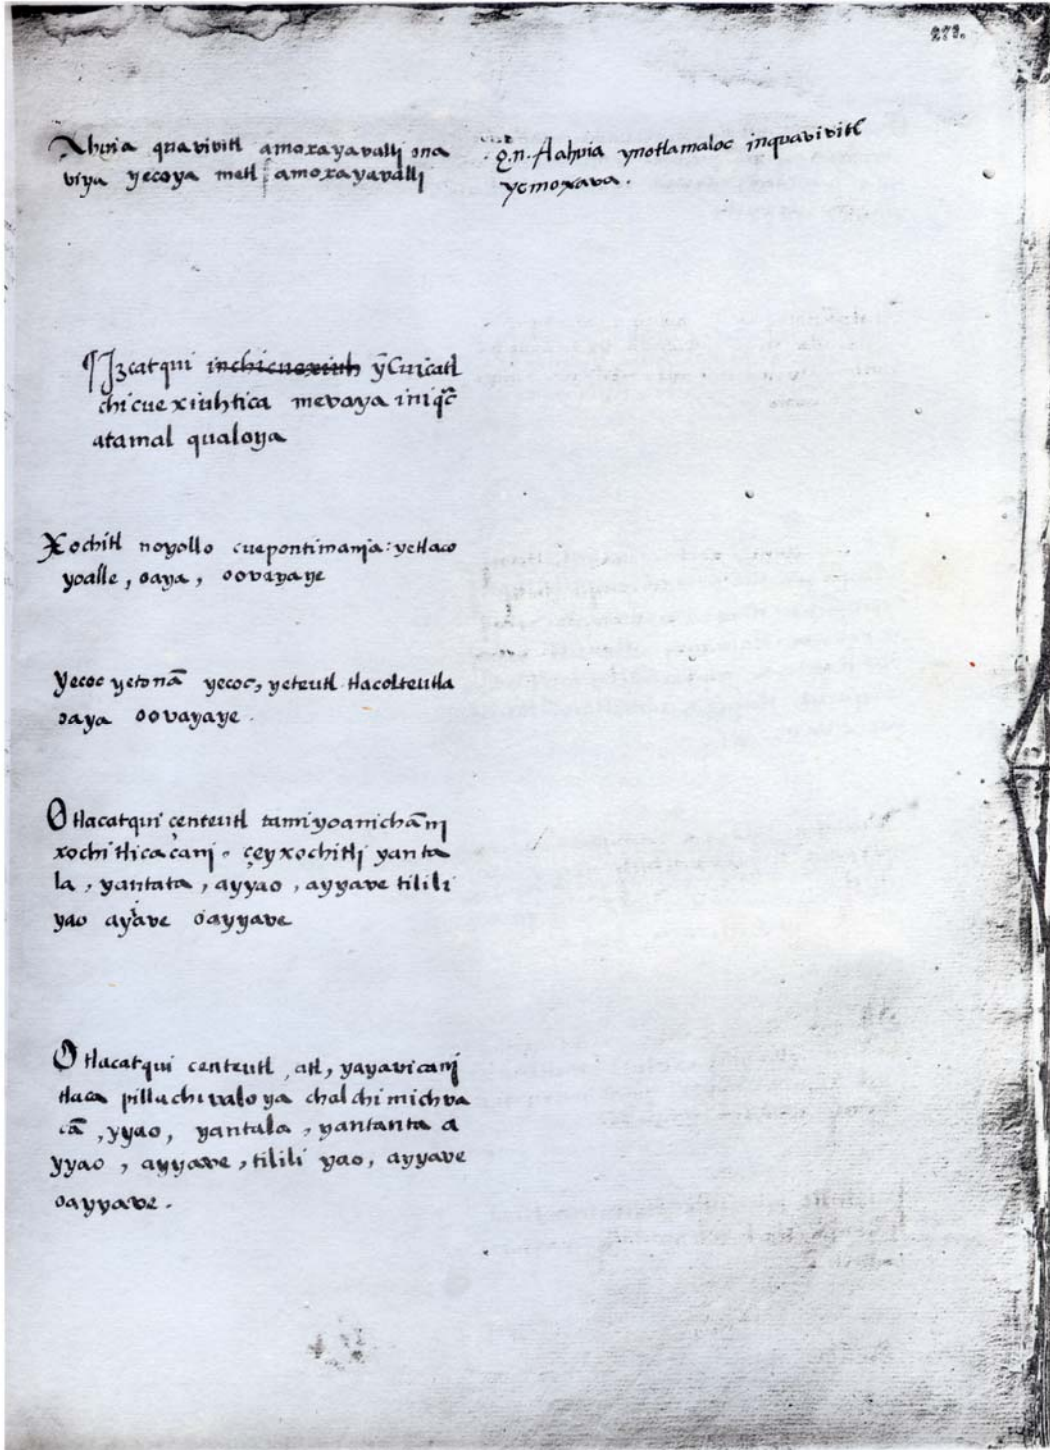 278.
Ahvia quavivitl amoxayavalli ona
viya yecoya metl amoxayavalli
.q.n. Aahvia ynotlamaloc inquavivitl
yemoxava.
¶Izcatqui inchicuexiuh yn̄ Cuicatl
chicuexiuhtica mevaya iniqc̄
atamal qualoya
Xochitl noyollo cuepontimanja: yetlaco
yoalle, oaya, oovayaye
Yecoc yetonā yecoc, yeteutl tlacolteutla
oaya oovayaye.
Otlacatqui çenteutl tamiyoanichānj
xochitlicacanj. çeyxochitlj yanta
la, yantata, ayyao, ayyave tilili
yao ayave oayyave
Otlacatqui centeutl, atl, yayavicanj
tlaca pillachivaloya chalchimichva
cā, yyao, yantala, yantanta a
yyao, ayyave, tilili yao, ayyave
oayyave.